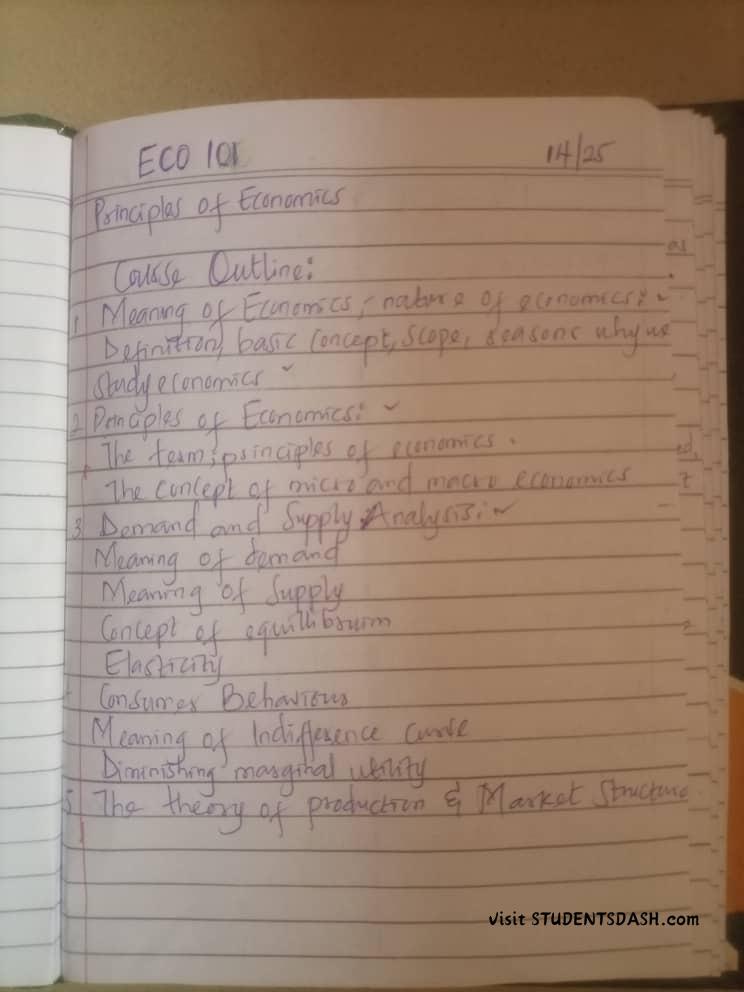 ECO 101
14/25
Principles of Economics
Course Outline:
1 Meaning of Economics, nature of economics:
Definition, basic concept, scope, reasons why we
study economics
2 Principles of Economics:
The term; principles of economics.
The concept of micro and macro economics
3 Demand and Supply Analysis:
Meaning of demand
Meaning of Supply
Concept of equillibrium
Elasticity
Consumer Behaviour
Meaning of Indifference curve
Diminishing marginal utility
5 The theory of production & Market Structure
Visit STUDENTSDASH.com